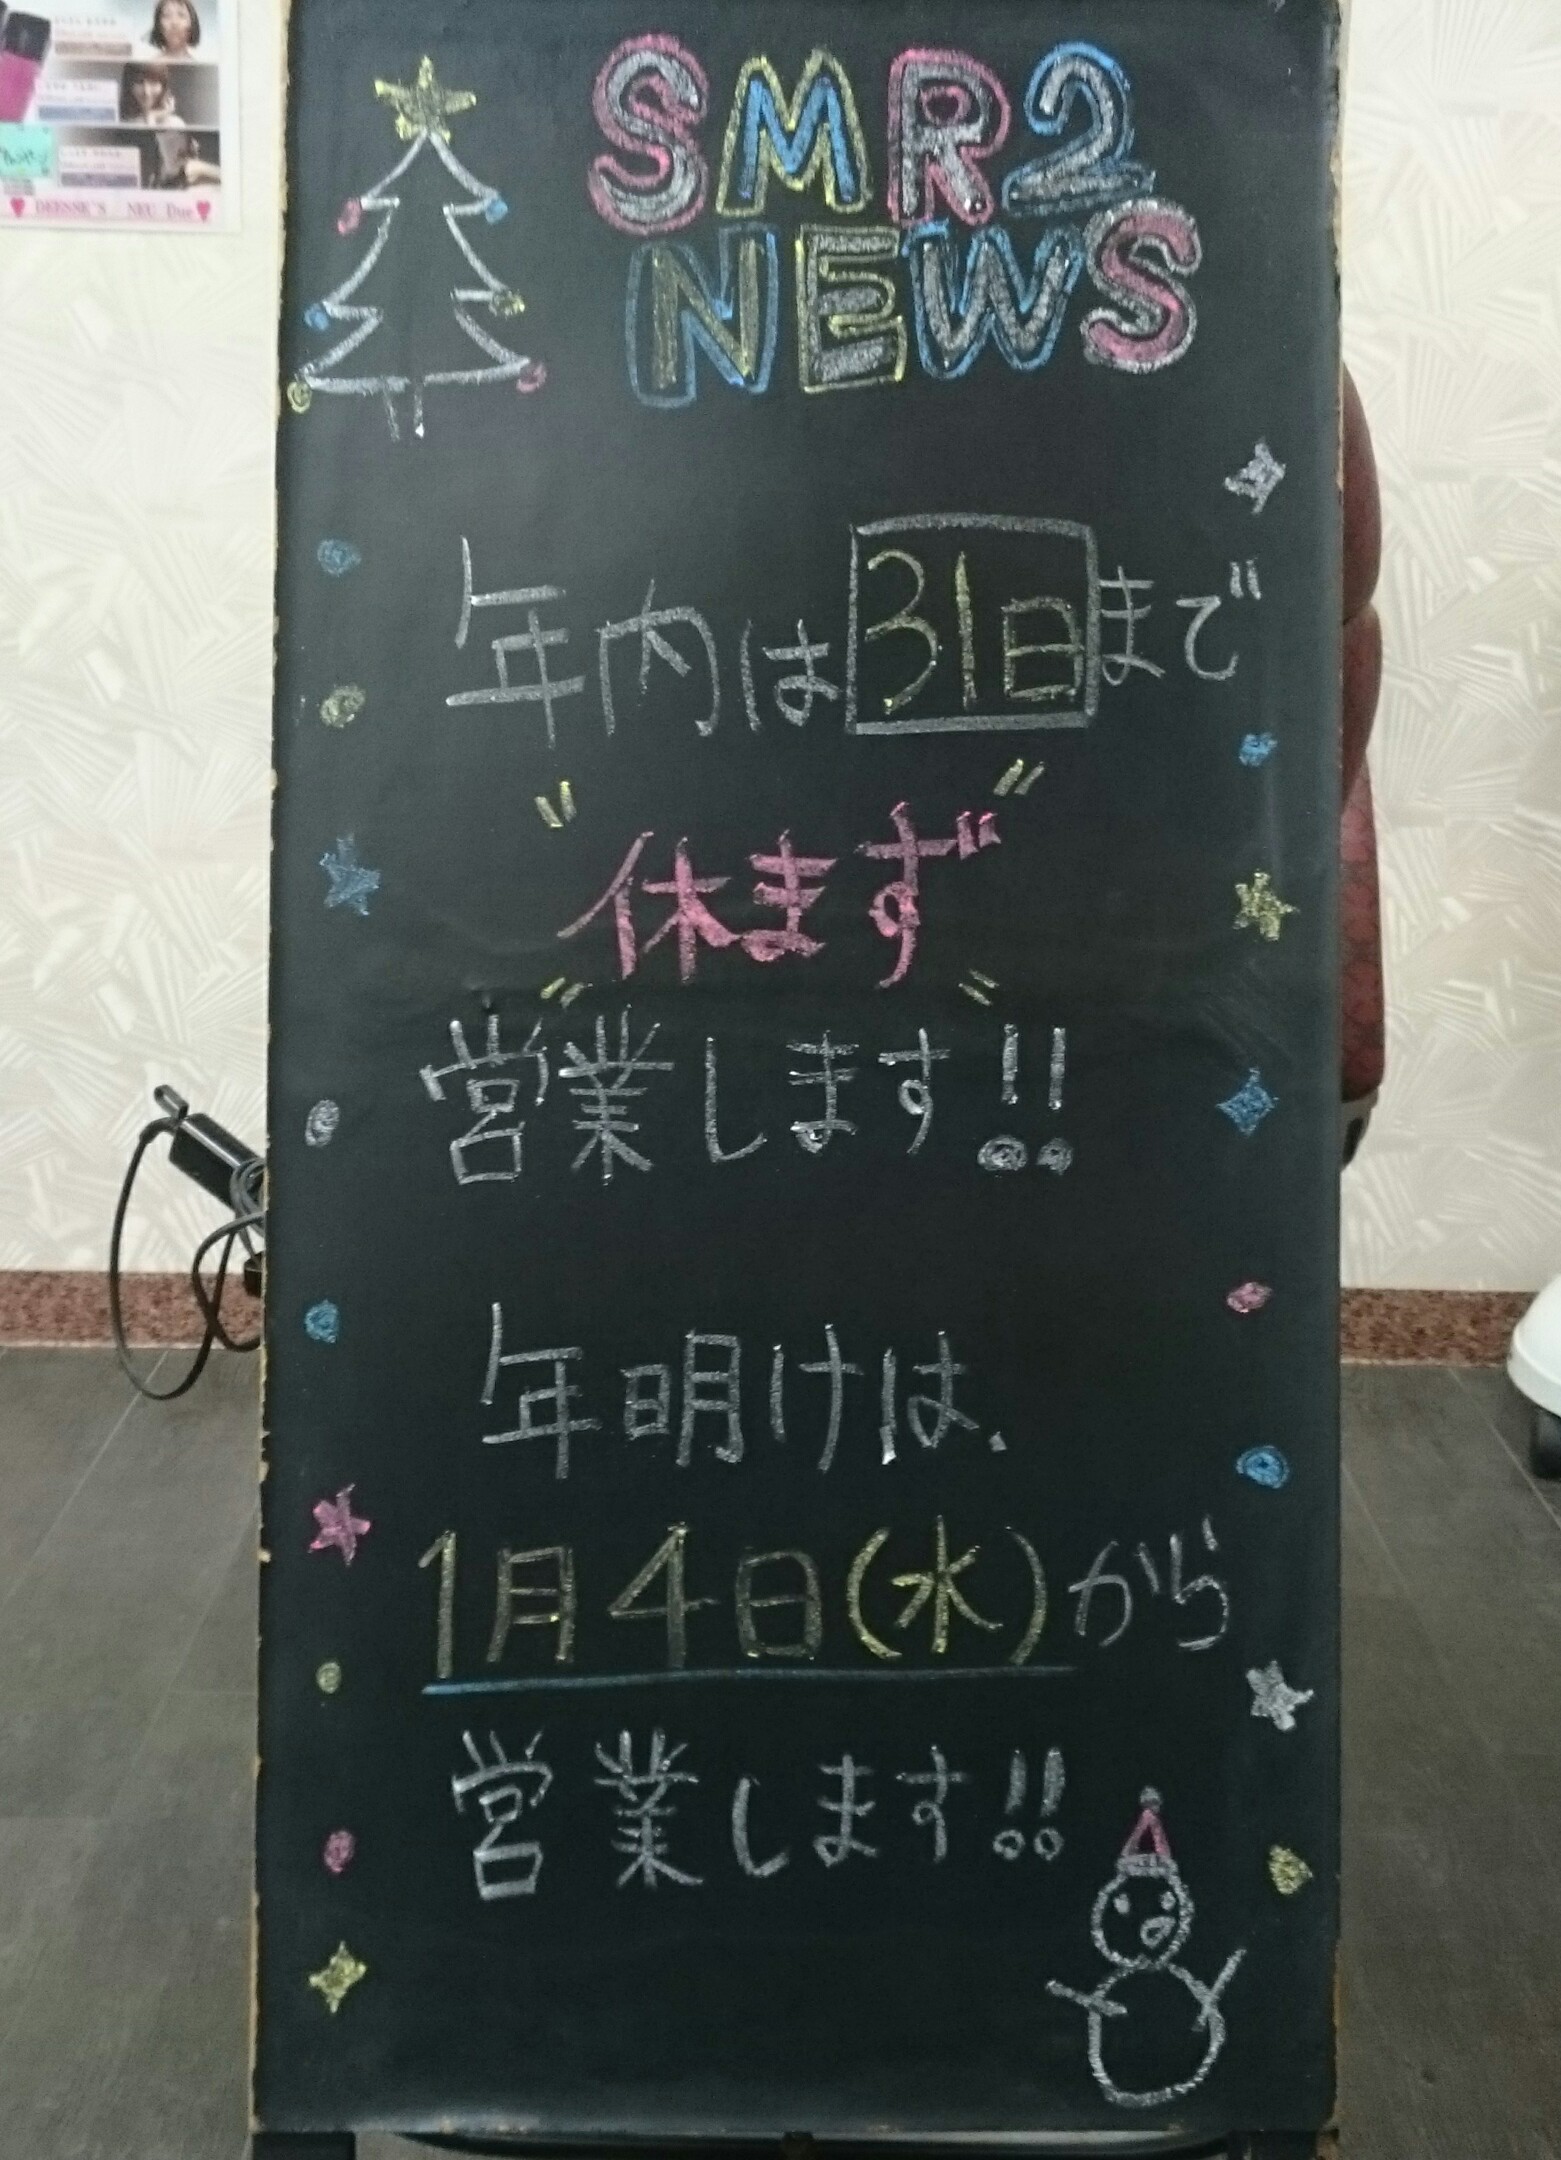 DEESSE'S NEU Due
SMR2
NEWS
年内は31日まで
"休まず"
営業します!!
年明けは、
1月4日(水)から
営業します!!